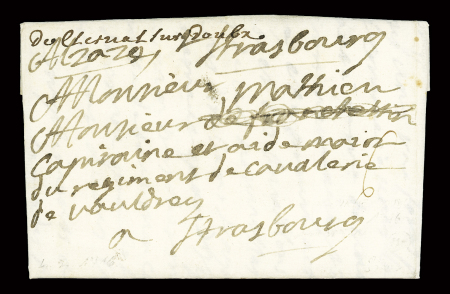 de Clerual sur Doubx
Alzaze, Strasbourg
Monsieur mathieu
Monsieur de
Capitaine et aide maior
du regiment de cavalerie
de vauldrey
a Strasbourg